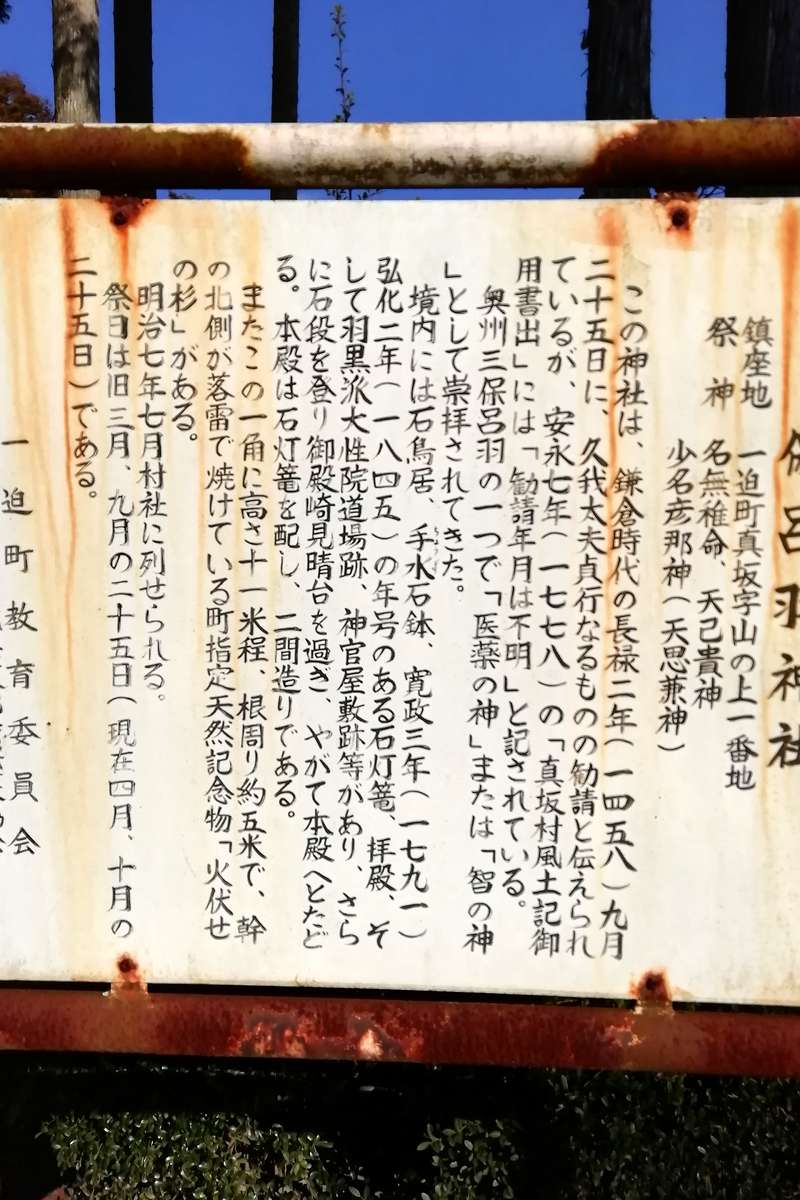 保呂羽神社
鎮座地 一迫町真坂字山の上一番地
祭神 名無稚命、天己貴神
少名彦那神(天思兼神)
この神社は、鎌倉時代の長禄二年(一四五八)九月
二十五日に、久我太夫貞行なるものの勧請と伝えられ
ているが、安永七年(一七七八)の「真坂村風土記御
用書出」には「勧請年月は不明」と記されている。
奥州三保呂羽の一つで「医薬の神」または「智の神
」として崇拝されてきた。
境内には石鳥居、手水石鉢、寛政三年(一七九一)
弘化二年(一八四五)の年号のある石灯篭、拝殿、そ
して羽黒派大性院道場跡、神官屋敷跡等があり、さら
に石段を登り御殿崎見晴台を過ぎ、やがて本殿へとたど
る。本殿は石灯篭を配し、二間造りである。
またこの一角に高さ十一米程、根周り約五米で、幹
の北側が落雷で焼けている町指定天然記念物「火伏せ
の杉」がある。
明治七年七月村社に列せられる。
祭日は旧三月、九月の二十五日(現在四月、十月の
二十五日)である。
一迫町教育委員会